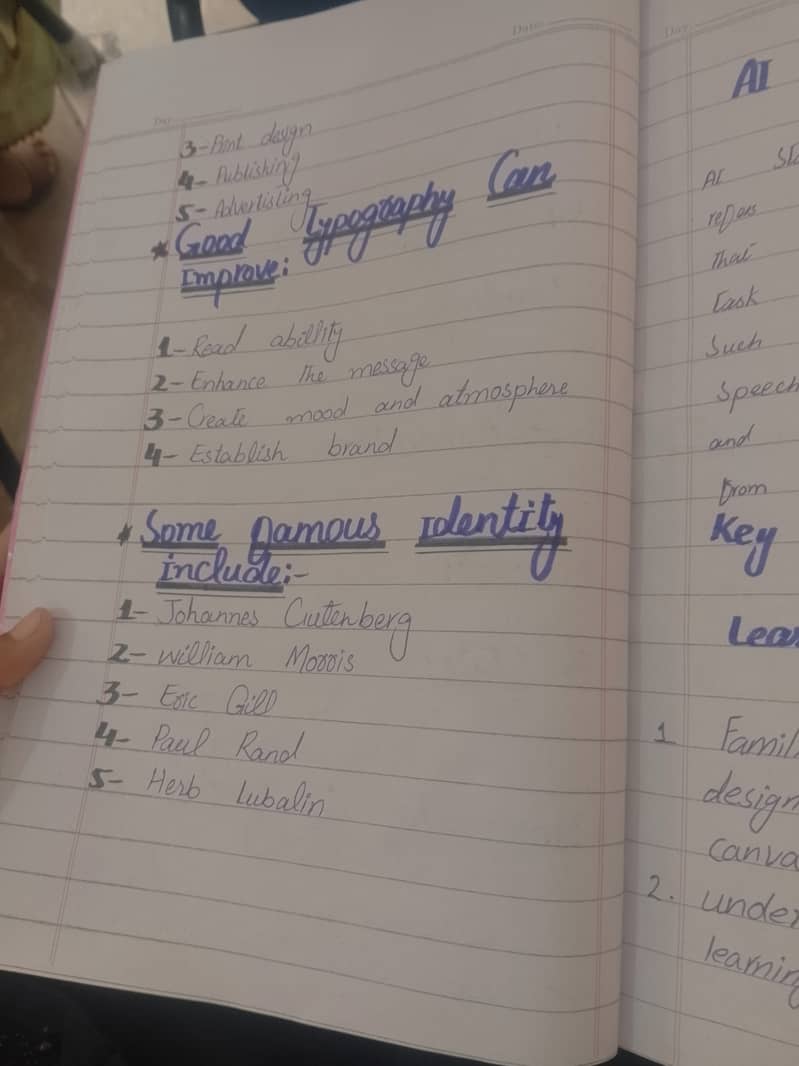 Date
Day
3-Print design
4- Publishing
5- Advertisting
* Good Typography Can
Improve:
1-Read abillity
2-Enhance The message
3-Create mood and atmosphere
4- Establish brand
* Some famous Identity
include:-
1- Johannes Gutenberg
2- William Morris
3- Eric Gill
4- Paul Rand
5- Herb Lubalin
Day
AI
AI
refers
That
Task
Such
Speech
and
from
Key
Lear
1 Famil
design
canva
2. under
learning